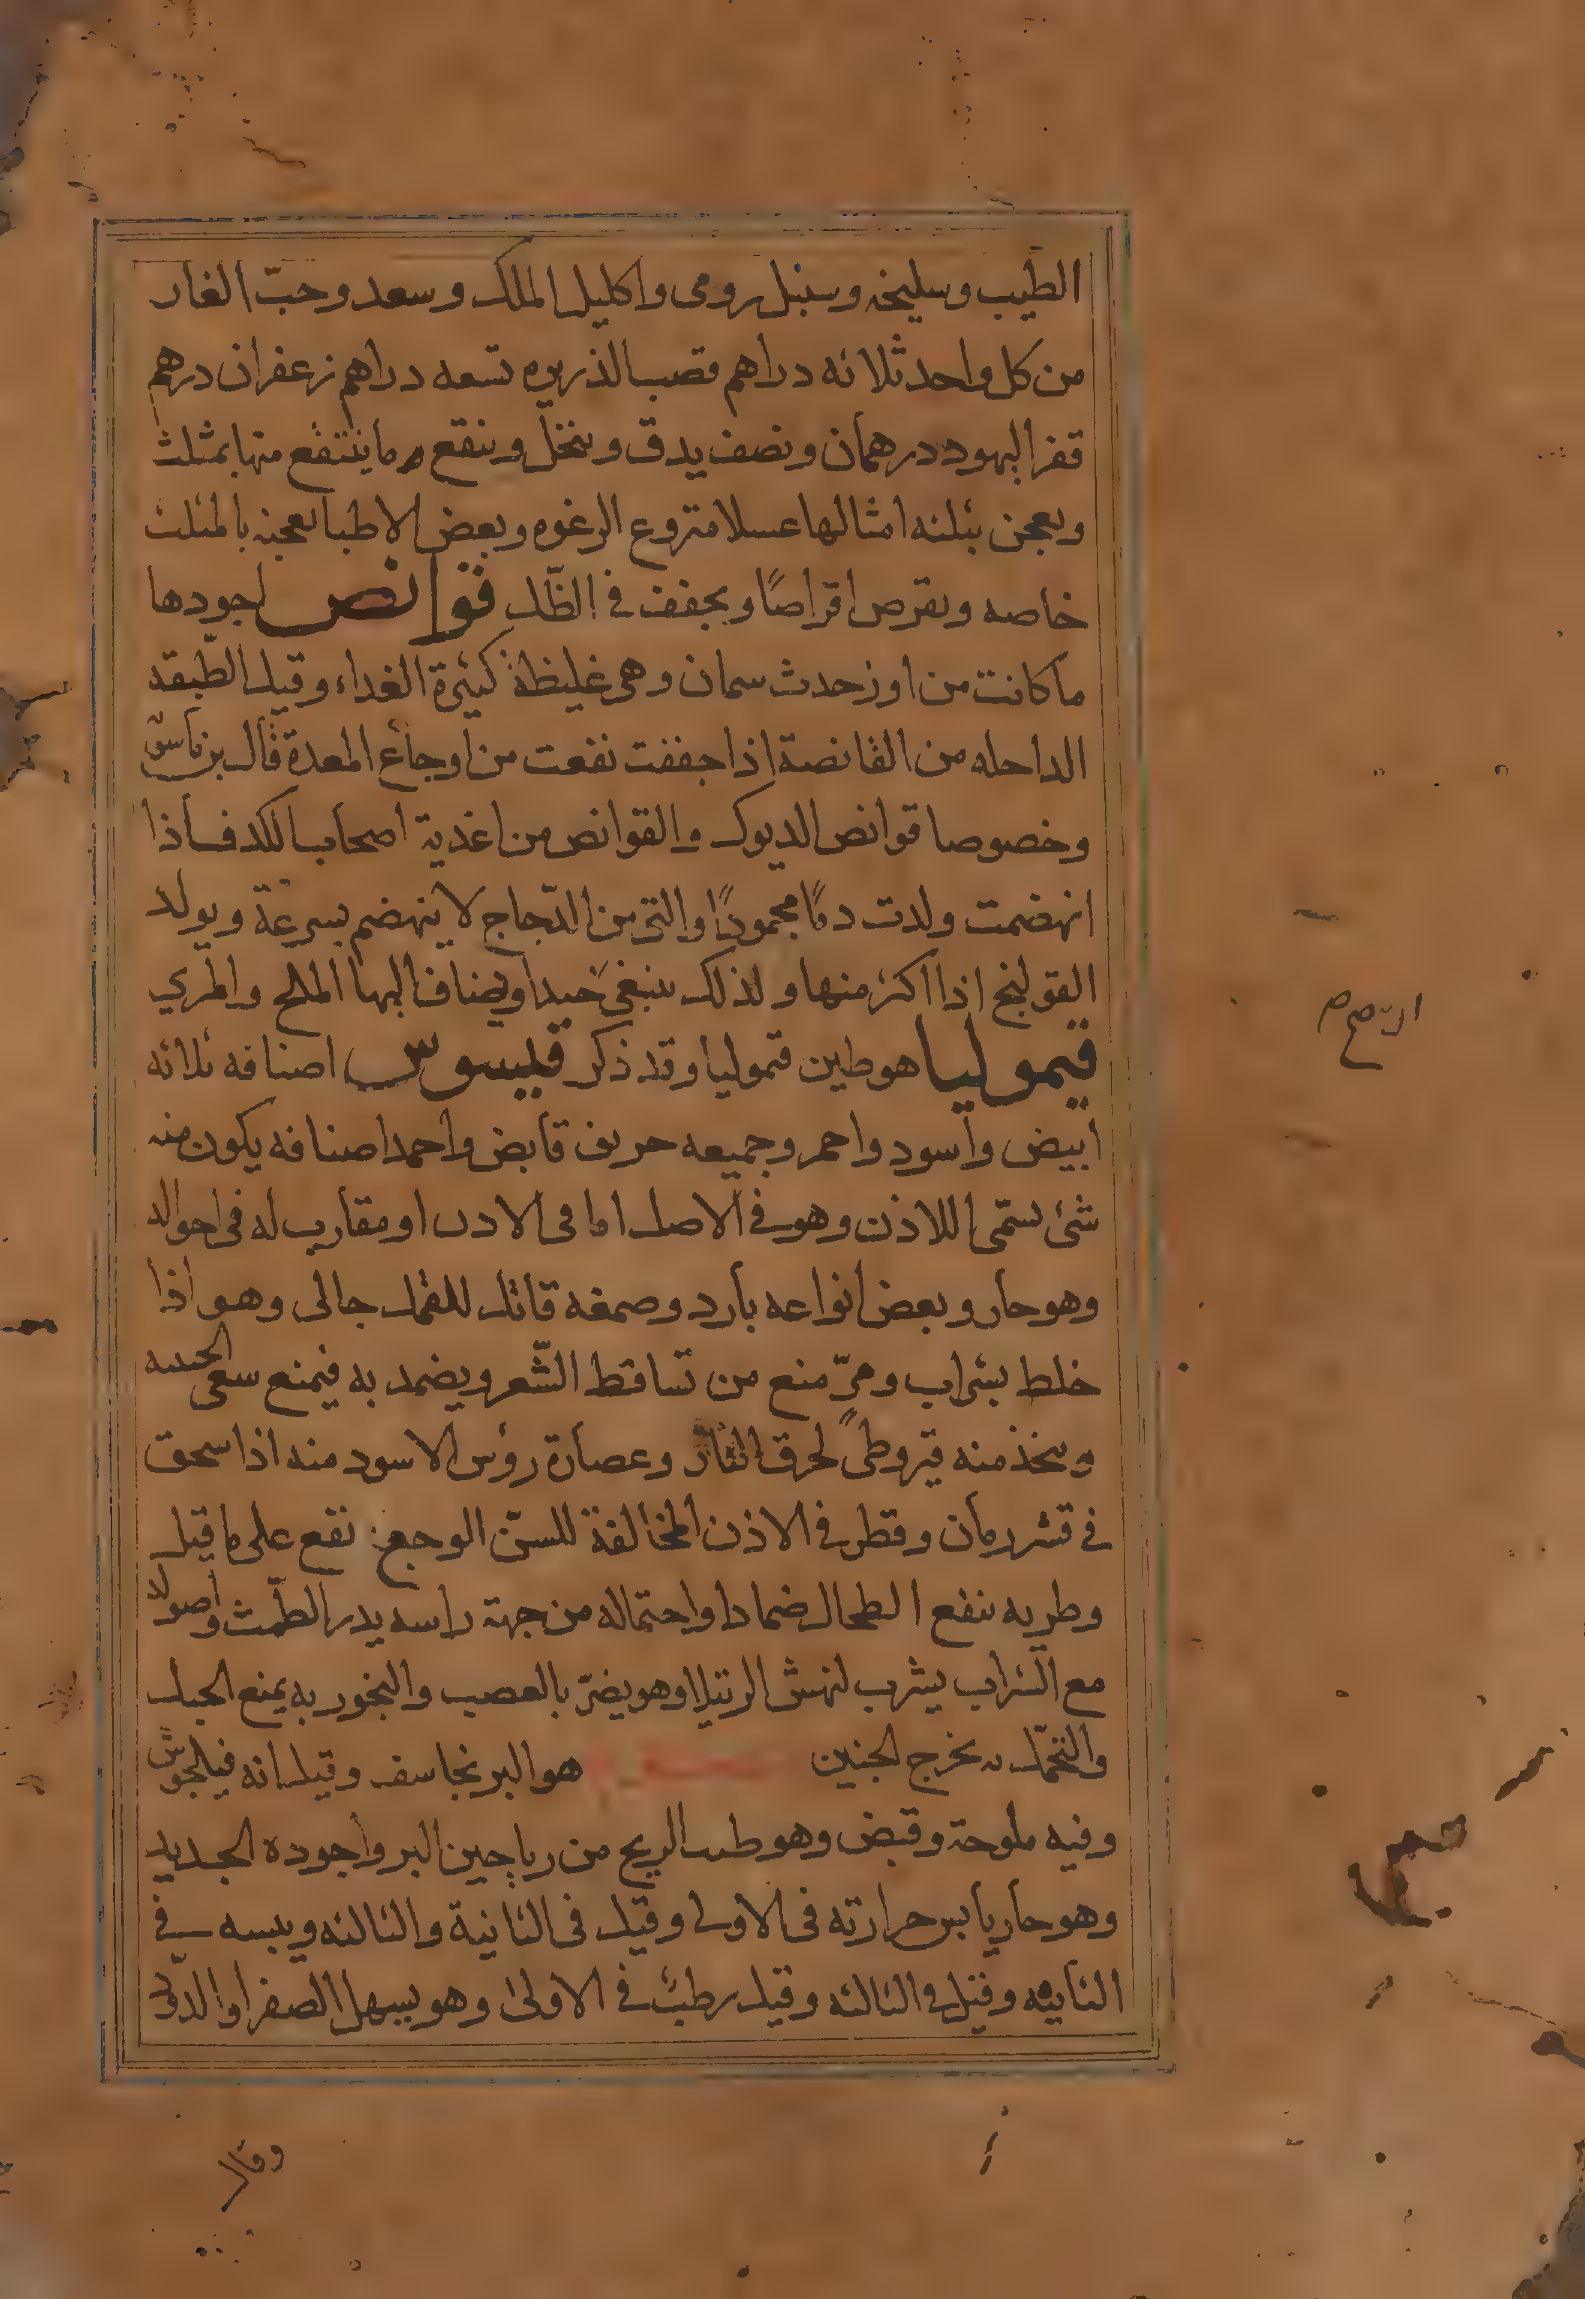 الطيب وسليخه وسنبل رومى واكليل الملك وسعد وحبّ الغار
من كل واحد ثلاثه دراهم قصب الذريره تسعه دراهم زعفران درهم
قفر اليهود درهمان ونصف يدق وينخل وينقع ما ينتقع منها بمثلث
ويعجن بثلثه امثالها عسلا منزوع الرغوه وبعض الاطبا يعجنه بالمثلث
خاصه ويقرص اقراصًا ويجفف فى الظّل قوانص اجودها
ما كانت من اوز حدث سمان وهى غليظة كثيرة الغداء وقيل الطبقه
الداخله من القانصة اذا جففت نفعت من اوجاع المعدة قال
وخصوصا قوانص الديوك والقوانص من اغدية اصحاب الكد فاذا
انهضمت ولدت دمًا محمودًا والتى من الدّجاج لا ينهضم بسرعة ويولد
القولنج اذا اكثر منها ولذلك ينبغى جيدا ويضاف اليها الملح والمري
قيموليا هو طين قتموليا وقد ذكر قيسوس اصنافه ثلاثه
ابيض واسود واحمر وجميعه حريف قابض واحمد اصنافه يكون منه
شئ يسمّى اللاذن وهو فى الاصل اما فى الادں او مقارب له فى احواله
وهو حار وبعض انواعه بارد وصمغه قاتل للقمل جالى وهو اذا
خلط بشراب ومرّ منع من تساقط الشّعر ويضمد به فيمنع سعى الخبيثه
ويتخذ منه قيروطى لحرق النار وعصارة رؤس الاسود منه اذا سحق
فى قشر رمان وقطر فى الاذن المخالفة للسنّ الوجع نفع على ما قيل
وطريه ينفع الطحال ضمادا واحتماله من جهة راسه يدر الطّمث واصوله
مع الشراب يشرب لنهش الرتيلا وهو يضرّ بالعصب والبخور به يمنع الحبل
والتحمّل به يخرج الجنين هو البرنجاسف وقيل انه
وفيه ملوحة وقبض وهو طيب الريح من رياحين البر واجوده الجديد
وهو حار يابس حرارته فى الاولى وقيل فى الثانية والثالثه ويبسه فى
الثانيه وقيل فى الثالثه وقيل رطب فى الاولى وهو يسهل الصفرا والدّود
وقال